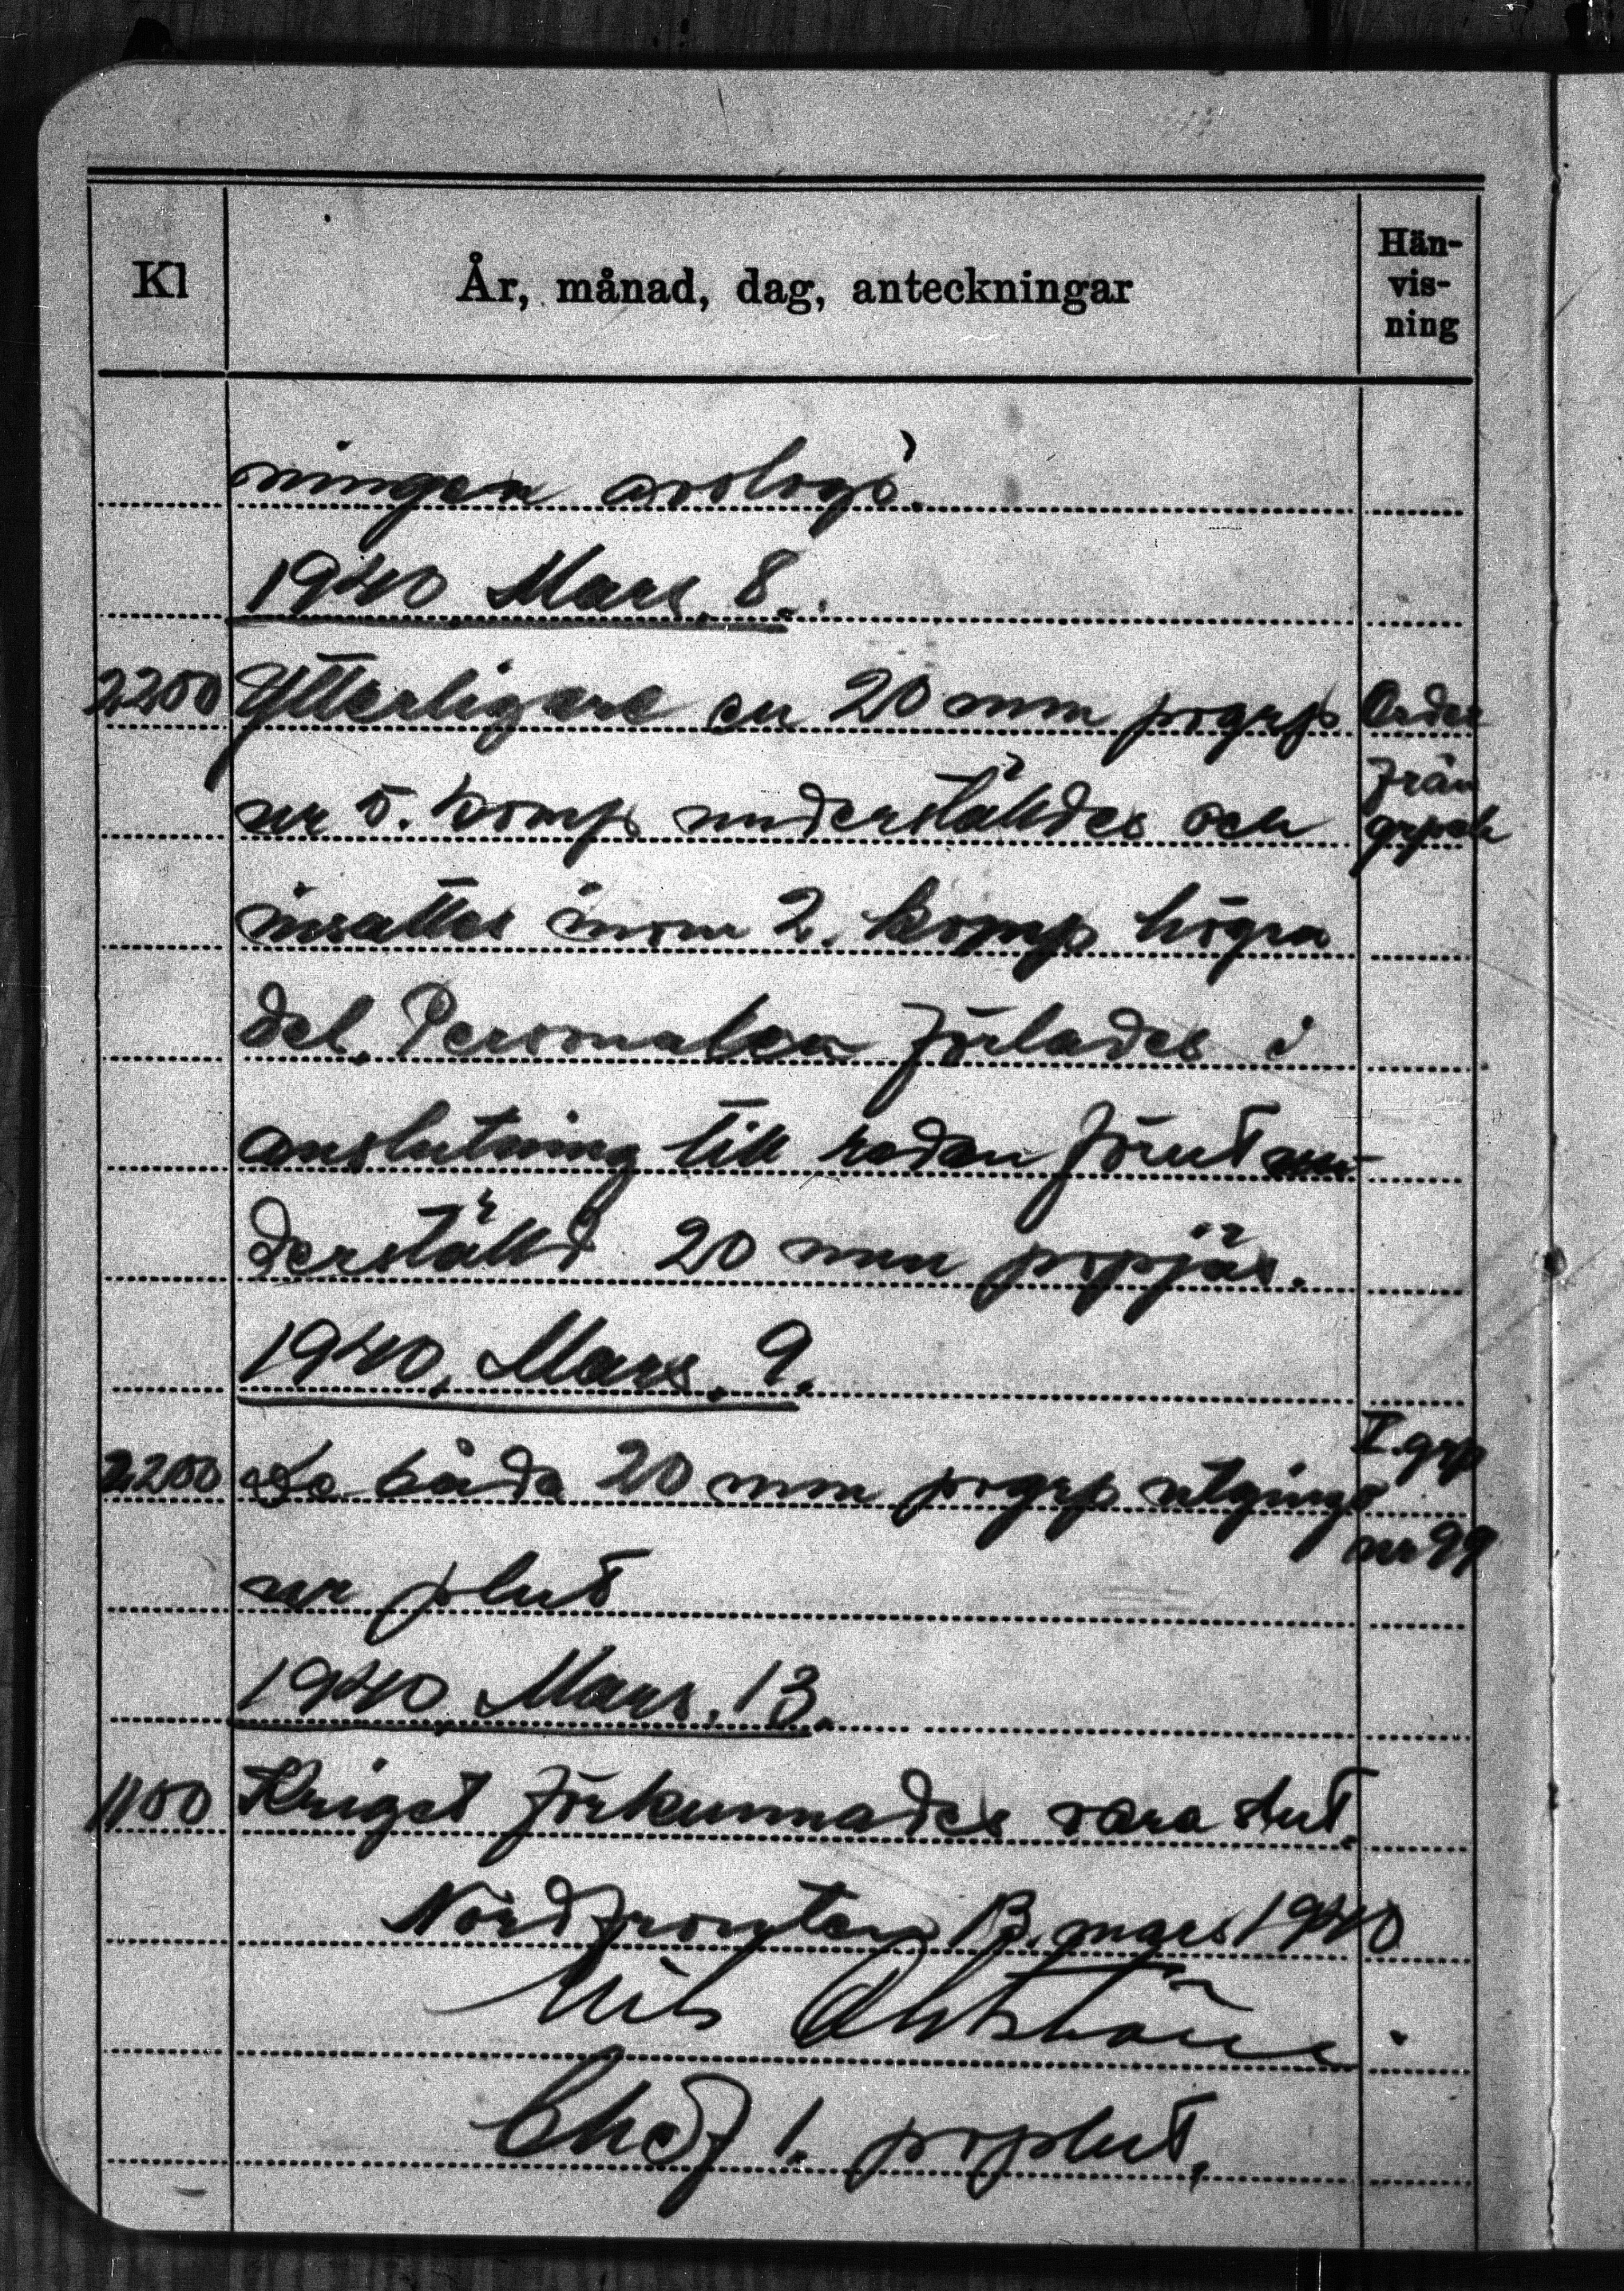 Kl
År, månad, dag, anteckningar
Hän-
vis-
ning
ningen avslogs.
1940 Mars. 8.
2200 Ytterligare en 20 mm pvgrp Order
ur 5. komp underställdes och från grpch
insattes inom 2. komp högra
del. Personalen förlades i
anslutning till redan förut un-
derställd 20 mm pvpjäs.
1940. Mars. 9.
2200 De båda 20 mm pvgrp utgingo I. grp
ur plut nr 99
1940 Mars. 13.
1100 Kriget förkunnades vara slut.
Nordfronten 13. mars 1940
Nils
Chef 1. pvplut.